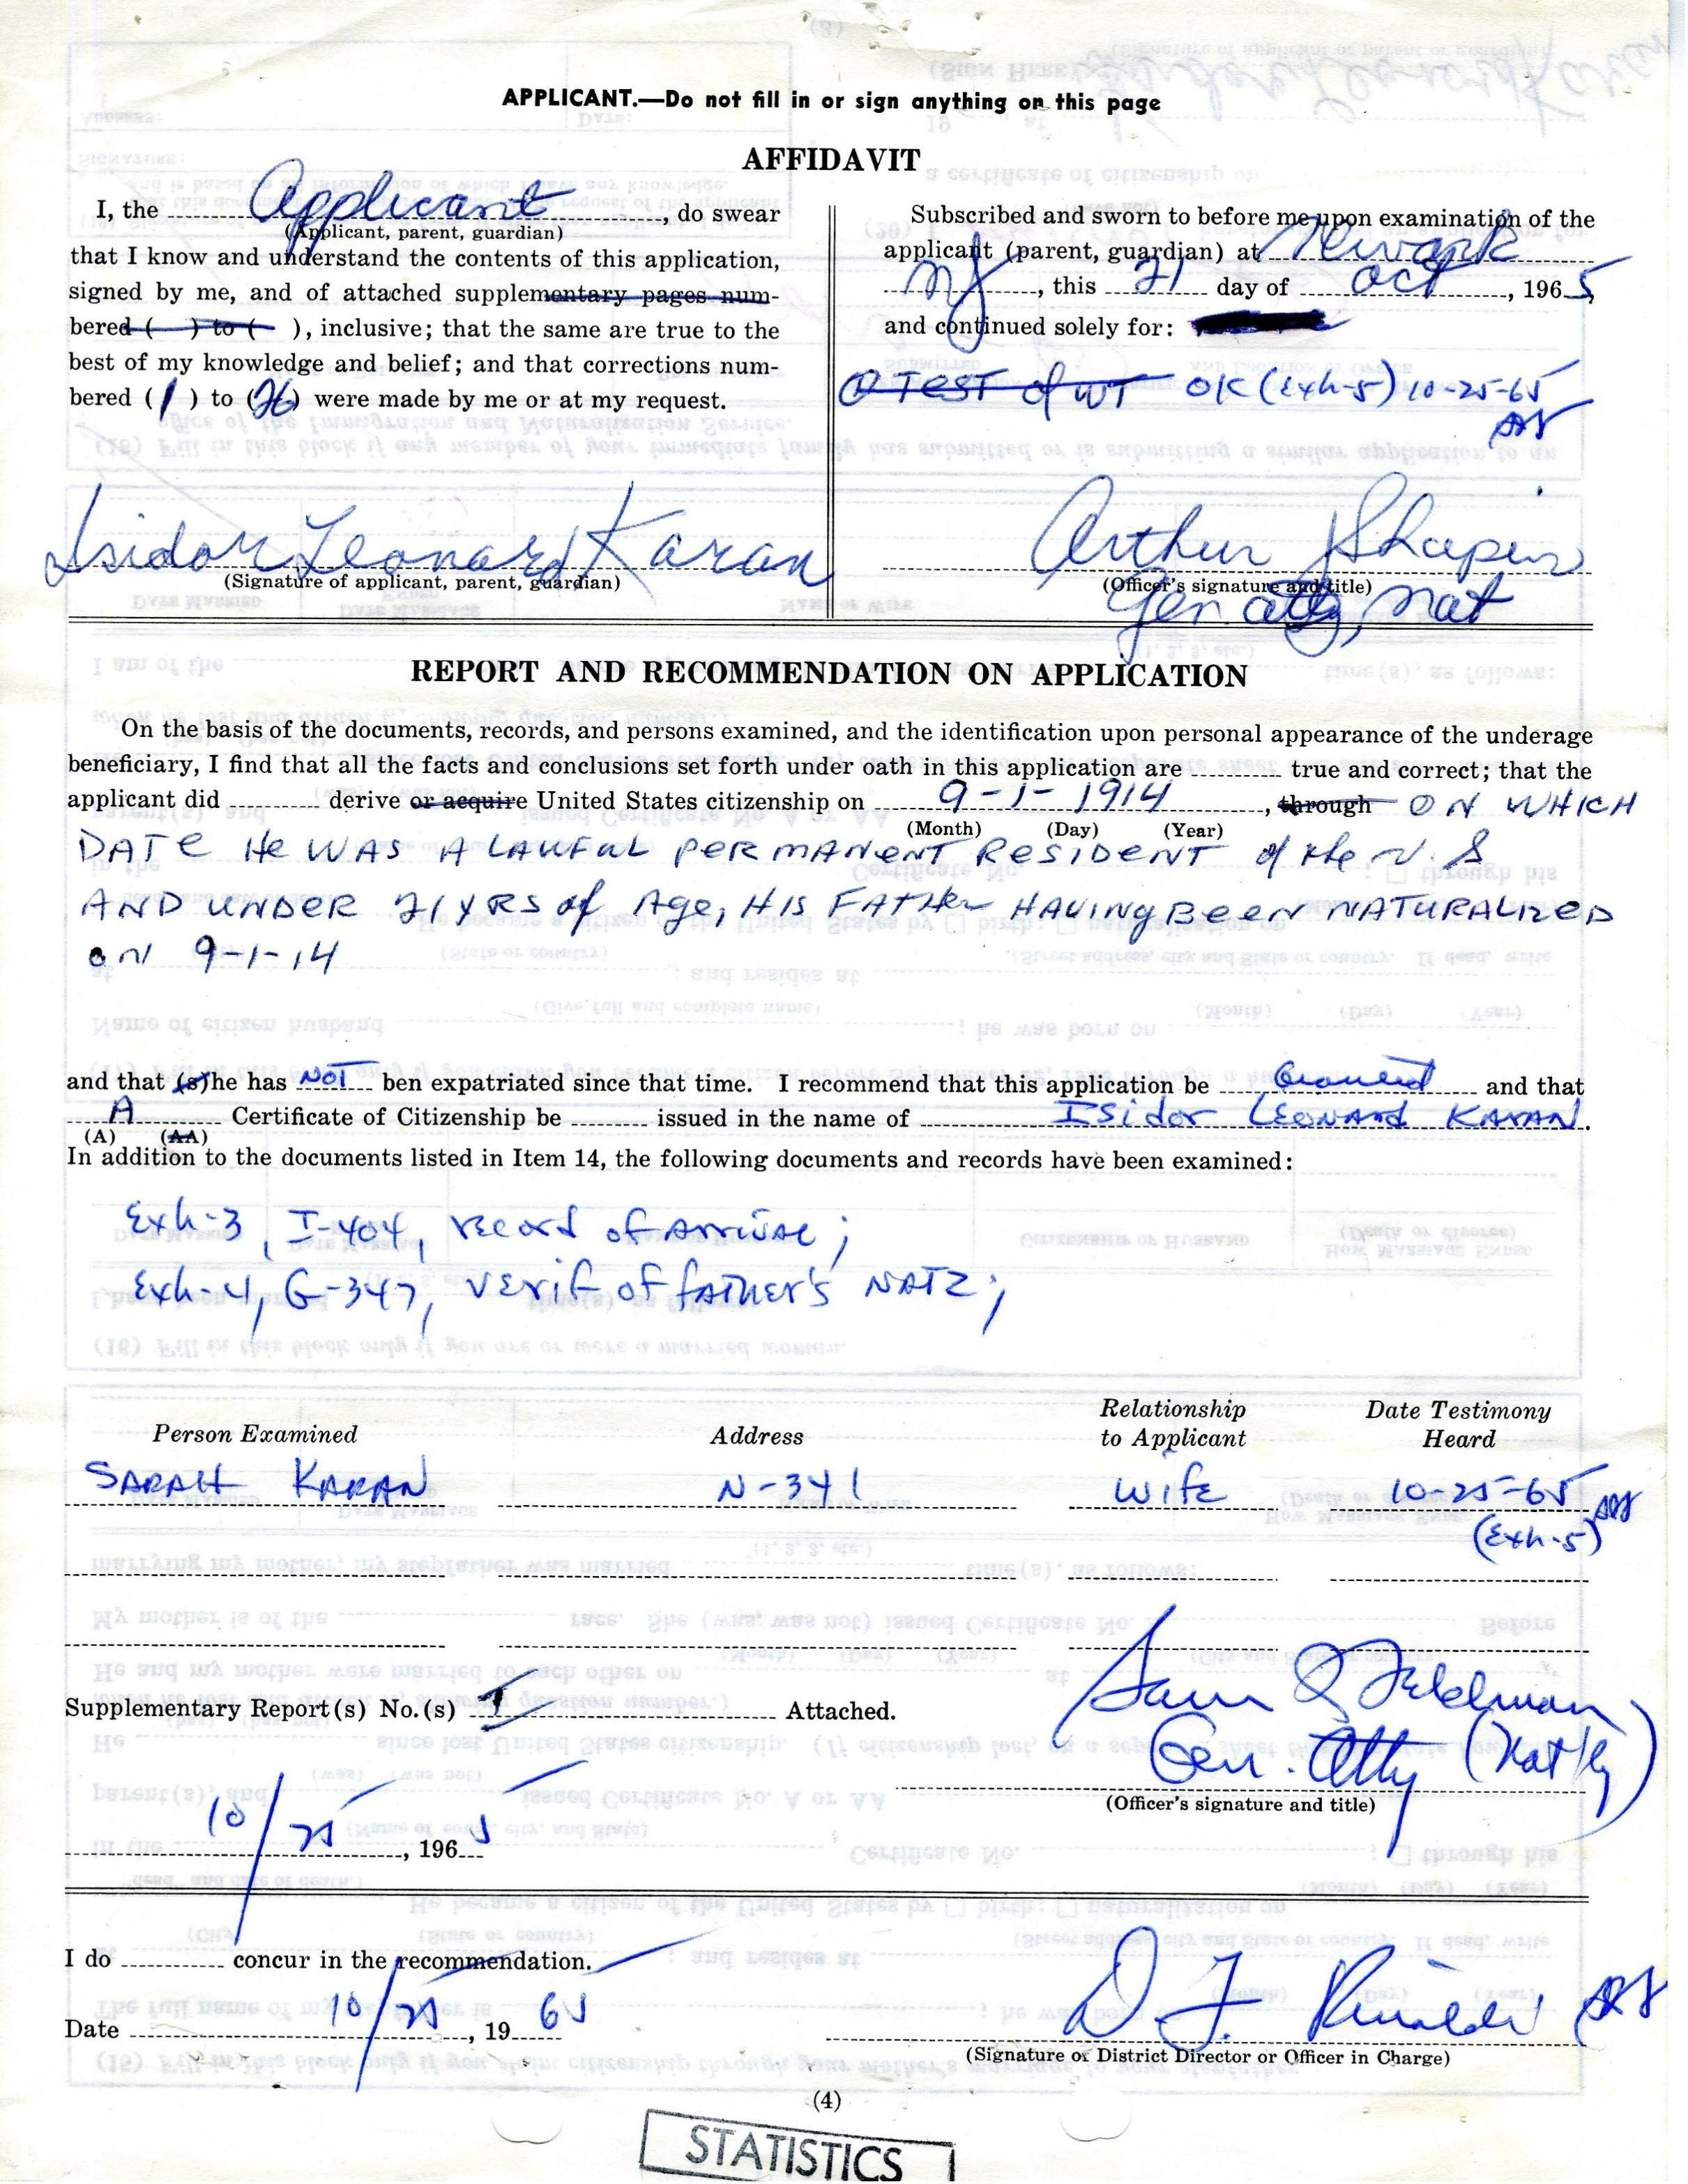 APPLICANT.—Do not fill in or sign anything on this page
AFFIDAVIT
I, the Applicant, do swear
(Applicant, parent, guardian)
that I know and understand the contents of this application,
signed by me, and of attached supplementary pages num-
bered ( ) to ( ), inclusive; that the same are true to the
best of my knowledge and belief; and that corrections num-
bered (1) to (26) were made by me or at my request.
Isidor Leonard Karan
(Signature of applicant, parent, guardian)
Subscribed and sworn to before me upon examination of the
applicant (parent, guardian) at Newark
NJ, this 21 day of Oct, 1965,
and continued solely for:
① TEST of WT OK (Exh-5) 10-25-65
Arthur J Shapiro
(Officer's signature and title)
Gen atty, Nat
REPORT AND RECOMMENDATION ON APPLICATION
On the basis of the documents, records, and persons examined, and the identification upon personal appearance of the underage
beneficiary, I find that all the facts and conclusions set forth under oath in this application are true and correct; that the
applicant did derive or acquire United States citizenship on 9-1-1914, through ON WHICH
(Month) (Day) (Year)
DATE He WAS A LAWFUL PERMANENT RESIDENT of the U. S
AND UNDER 21 YRS of Age, HIS FATHer HAVINg BeeN NATURALIZED
oN 9-1-14
and that (s)he has NOT ben expatriated since that time. I recommend that this application be Granted and that
A Certificate of Citizenship be issued in the name of ISidor LEONArd KARAN.
(A) (AA)
In addition to the documents listed in Item 14, the following documents and records have been examined:
Exh-3, I-404, record of Arrival;
Exh-4, G-347, verif of fATHer's NATZ;
Person Examined Address Relationship to Applicant Date Testimony Heard
SARAH KARAN N-341 Wife 10-25-65
(Exh-5)
Supplementary Report(s) No.(s) 1 Attached.
Sam Q Feldman
Gen. Atty (Nat'lty)
(Officer's signature and title)
10/25, 1965
I do concur in the recommendation.
Date 10/25, 1965
D. F. Rinaldi
(Signature of District Director or Officer in Charge)
(4)
STATISTICS